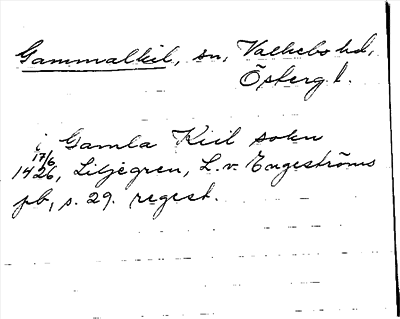 Gammalkil, sn, Valkebo hd,
Österg l.
i Gamla Kiil sokn
17/6
1426, Liljegren, L. v. Engeströms
pb, s. 29. regest.